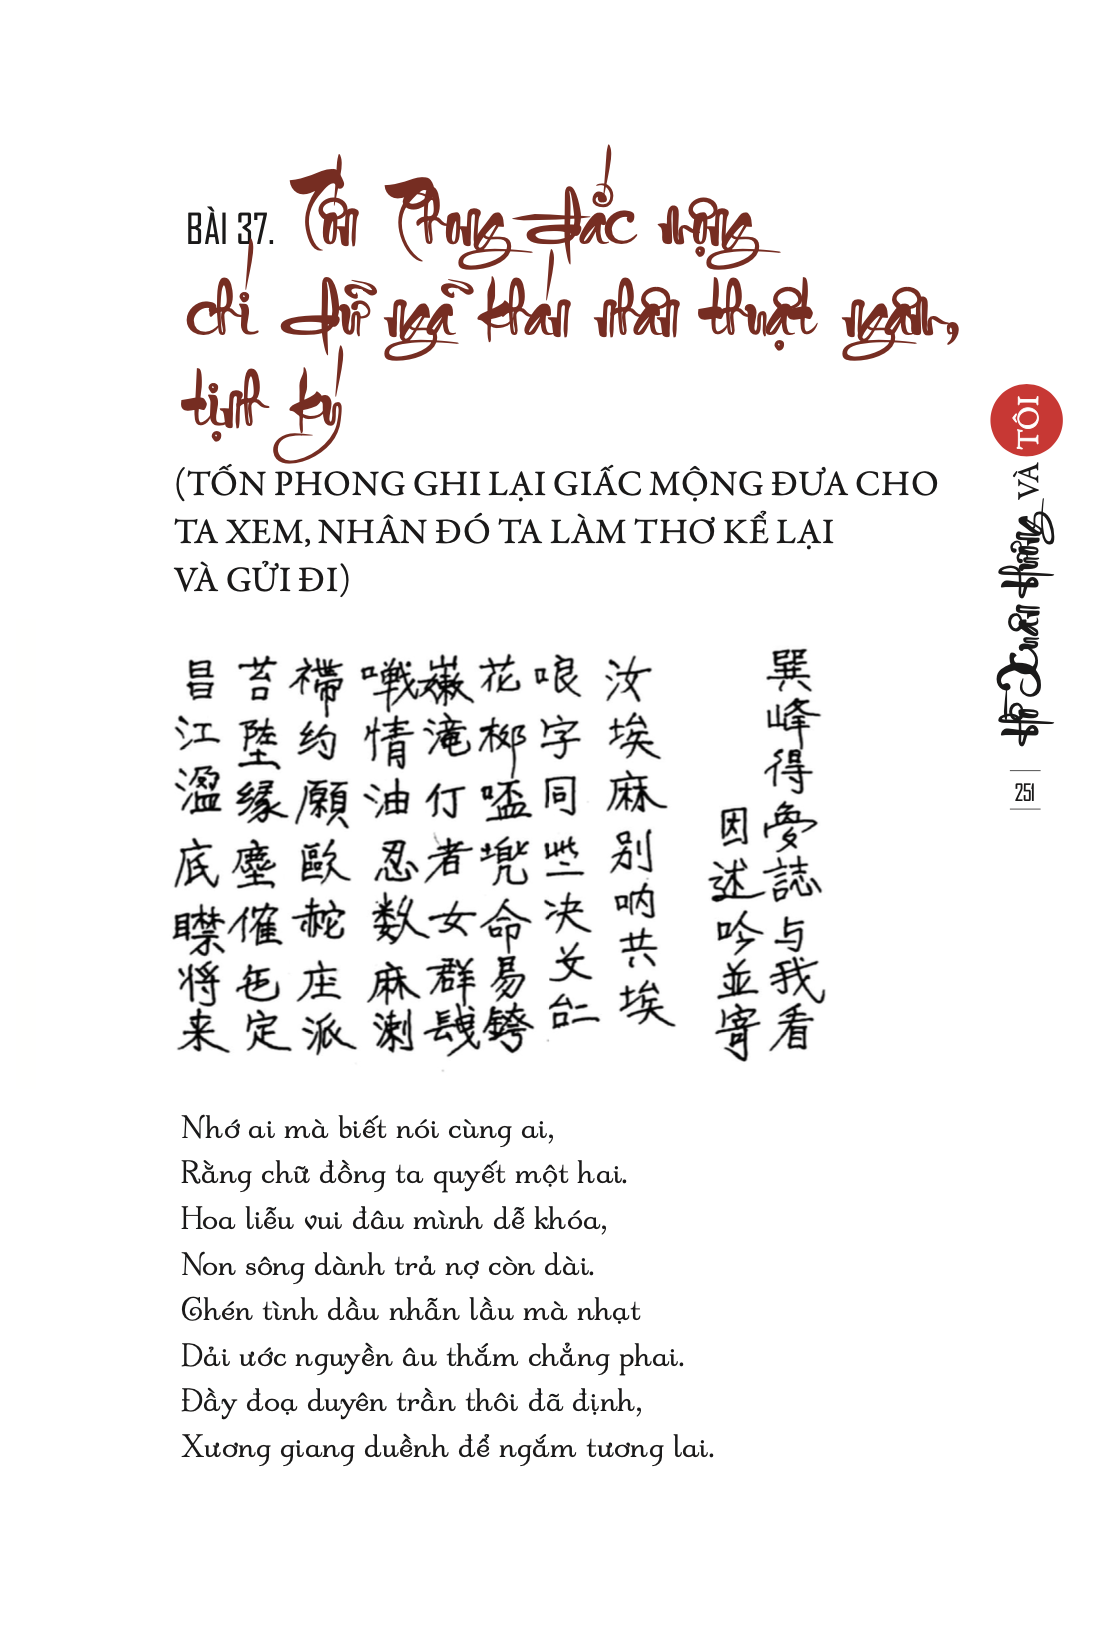 BÀI 37. Tốn Phong đắc mộng
chí dữ ngã khán nhân thuật ngâm,
tịnh ký
(TỐN PHONG GHI LẠI GIẤC MỘNG ĐƯA CHO
TA XEM, NHÂN ĐÓ TA LÀM THƠ KỂ LẠI
VÀ GỬI ĐI)
巽峰得夢誌与我看
因述吟並寄
汝埃麻別呐共埃
哴字同些决
花柳盃兜命易銙
滝仃者女群
情油忍数麻溂
约願歐庄派
苔缘塵催定
昌江溋底将来
Nhớ ai mà biết nói cùng ai,
Rằng chữ đồng ta quyết một hai.
Hoa liễu vui đâu mình dễ khóa,
Non sông dành trả nợ còn dài.
Ghén tình dầu nhẫn lầu mà nhạt
Dải ước nguyền âu thắm chẳng phai.
Đầy đoạ duyên trần thôi đã định,
Xương giang duềnh để ngắm tương lai.
Hồ Xuân Hương VÀ TÔI
251